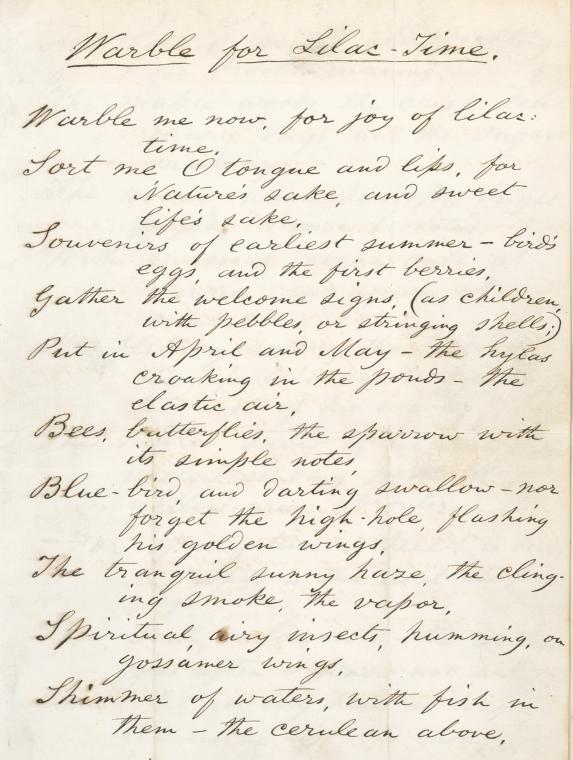 Warble for Lilac-Time.
Warble me now, for joy of lilac-
time.
Sort me O tongue and lips, for
Nature's sake, and sweet
life's sake,
Souvenirs of earliest summer – bird's
eggs, and the first berries,
Gather the welcome signs, (as children,
with pebbles, or stringing shells;)
Put in April and May – the hylas
croaking in the ponds – the
elastic air,
Bees, butterflies, the sparrow with
its simple notes,
Blue-bird, and darting swallow – nor
forget the high-hole, flashing
his golden wings,
The tranquil sunny haze, the cling-
ing smoke, the vapor,
Spiritual airy insects, humming, on
gossamer wings,
Shimmer of waters, with fish in
them – the cerulean above,